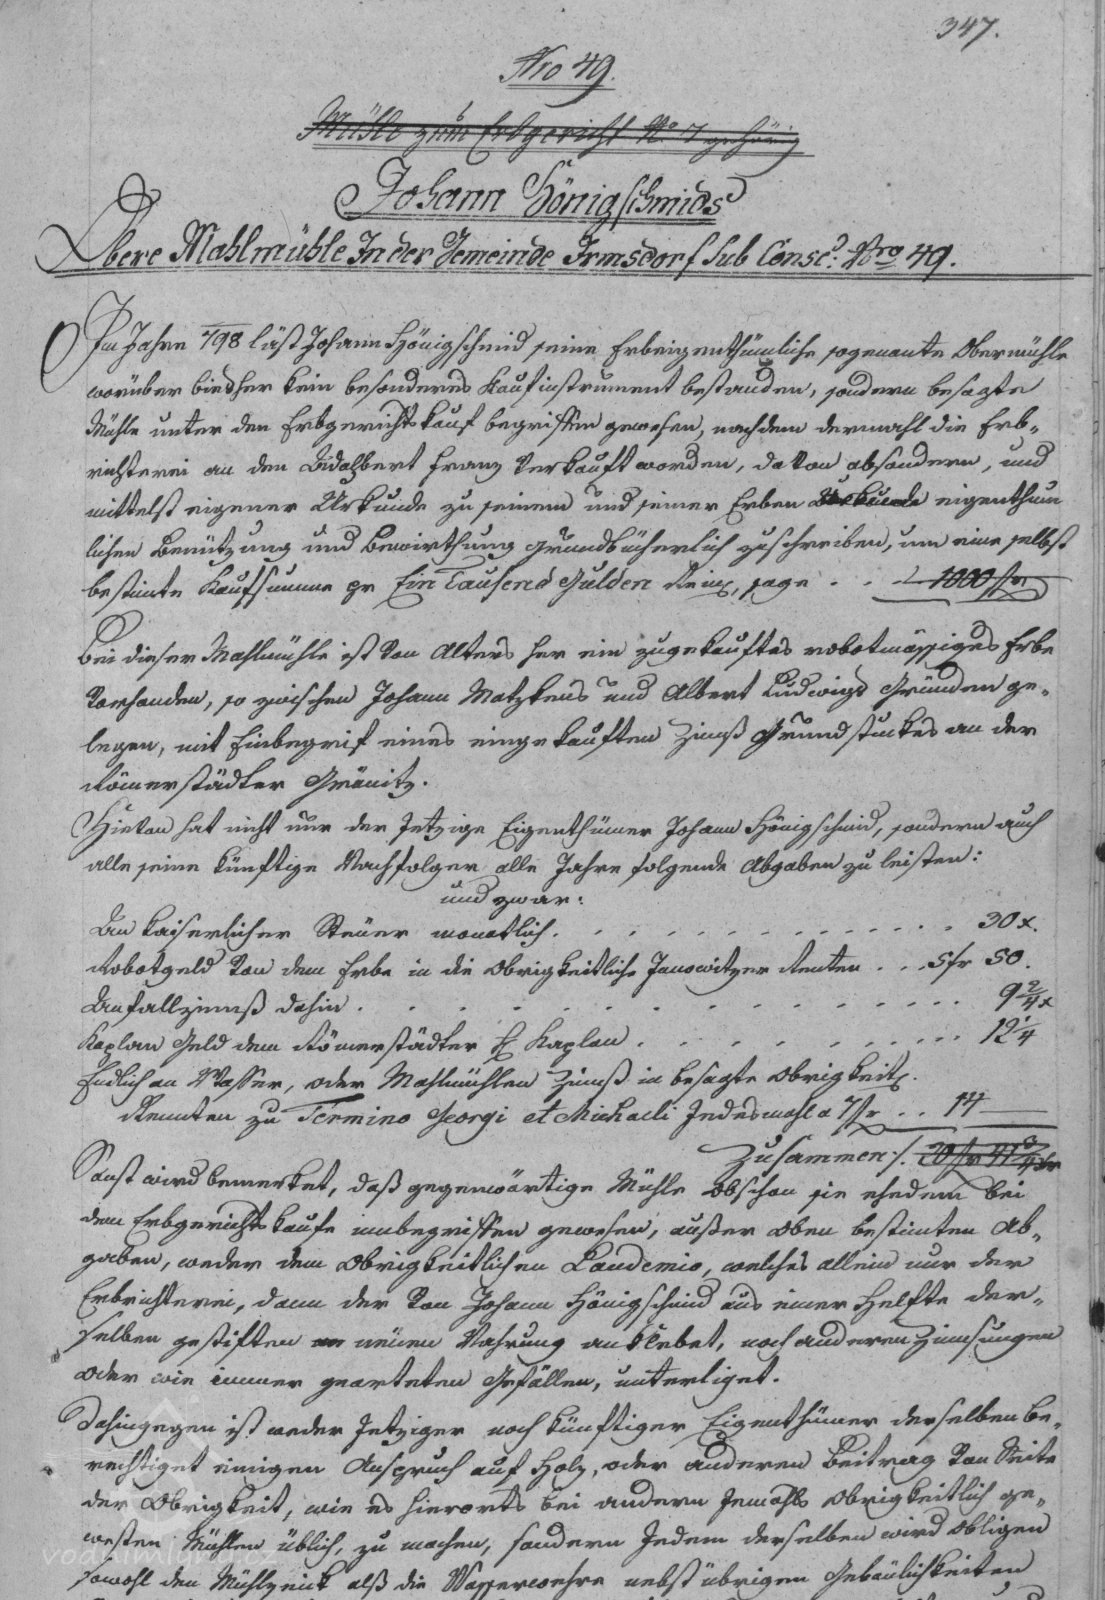 347.
Nro 49.
Mühle zum Erbgericht No 7 gehörig
Johann Hönigschmids
Obere Mahlmühle In der Gemeinde Irmsdorf sub Consc: Nro 49.
Im Jahre 798 läst Johann Hönigschmid seine Erbeigenthümliche sogenante Obermühle
worüber bisher kein besonderes Kaufinstrument bestanden, sondern besagte
Mühle unter den Erbgerichtskauf begriffen gewesen, nachdem dermahl die Erb-
richterei an den Adalbert Franz verkauft worden, davon absondern, und
mittelst eigener Urkunde zu seinem und seiner Erben eigenthum
lichen Benützung und Bewirthung grundbücherlich zuschreiben, um eine selbst
bestimte Kaufsumme pr Ein Tausend Gulden Rein, sage . . . 1000 fr
Bei dieser Mahlmühle ist von Alters her ein zugekauftes robotmässiges Erbe
vorhanden, so zwischen Johann Matzkens und Albert Ludwigs Gründen ge-
legen, mit Einbegrif eines eingekauften Zinnß Grundstuckes an der
Römerstädter Gränitz.
Hievon hat nicht nur der Jetzige Eigenthümer Johann Hönigschmid, sondern auch
alle seine künftige Nachfolger alle Jahre folgende Abgaben zu leisten:
und zwar:
An kaiserlicher Steüer monatlich . . . 30 x.
Robotgeld von dem Erbe in die Obrigkeitliche Janowitzer Renten . . . 5 fr 50.
Anfallzinnß dahin . . . 9 2/4 x
Kaplan Geld dem Römerstädter H Kaplan . . . 12 1/4
Endlich an Wasser, oder Mahlmühlen Zinnß in besagte Obrigkeitl.
Rennten zu Termino Georgi et Michaeli Jedesmahl a 7 fr . . 14
Zusammen ./. 20 fr 41 3/4 xr
Sonst wird bemerket, daß gegenwärtige Mühle obschon sie ehedem bei
dem Erbgerichtskaufe innbegriffen gewesen, außer oben bestimten Ab-
gaben, weder dem Obrigkeitlichen Laudemio, welches allein nur der
Erbrichterei, dann der von Johann Hönigschmid aus einer Helfte der-
selben gestiften neüen Nahrung anklebet, noch anderen Zinnsungen
oder wie immer gearteten Gefällen, unterliget.
Dahingegen ist weder Jetziger noch künftiger Eigenthümer derselben be-
rechtiget einigen Anspruch auf Holz, oder anderen Beitrag von Seite
der Obrigkeit, wie es hierorts bei andern Jemahls Obrigkeitlich ge-
westen Mühlen üblich, zu machen, sondern Jedem derselben wird obligen
sowohl den Mühlzeüg alß die Wasserwehre nebst übrigen Gebäulichkeiten
vodnimlyny.cz